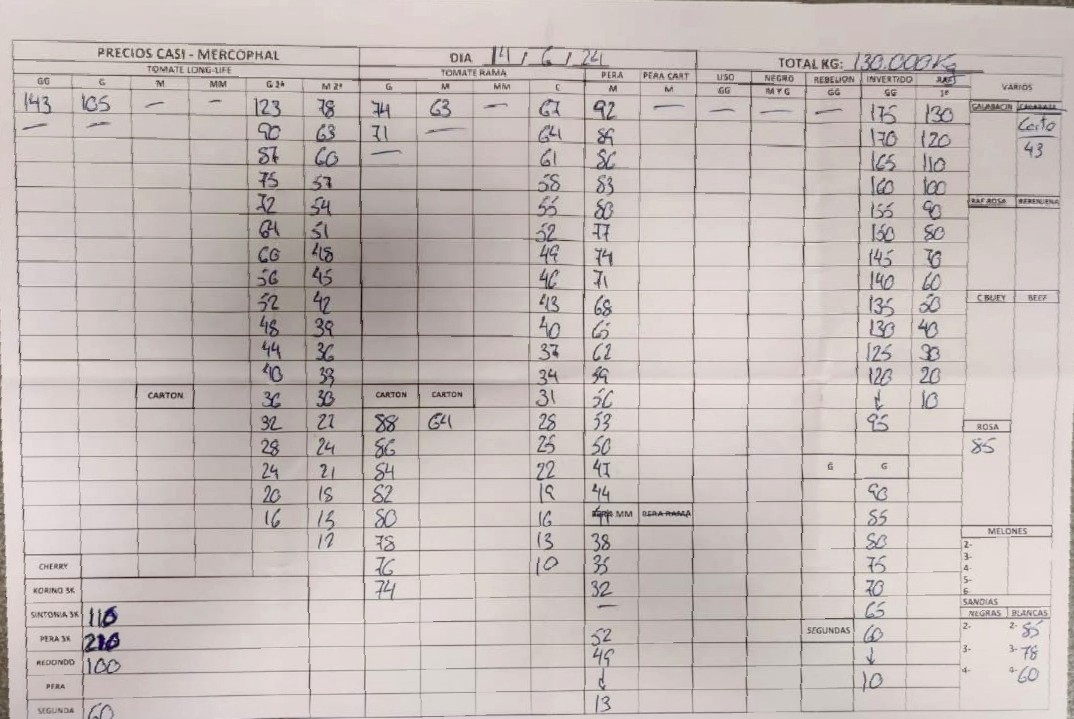 PRECIOS CASI - MERCOPHAL DIA 14/6/24 TOTAL KG: 130.000KG
TOMATE LONG-LIFE TOMATE RAMA PERA PERA CART LISO NEGRO REBELION INVERTIDO RAF VARIOS
GG G M MM G 2ª M 2ª G M MM C M M GG M Y G GG GG 1ª
143 105 — — 123 78 74 63 — 67 92 — — — — 175 130 CALABACIN CALABAZA
— — 90 63 71 — 64 89 170 120 Corto
87 60 — 61 86 165 110 43
75 57 58 83 160 100
72 54 55 80 155 90 RAF ROSA BERENJENA
64 51 52 77 150 80
60 48 49 74 145 70
56 45 46 71 140 60
52 42 43 68 135 50 C BUEY BEEF
48 39 40 65 130 40
44 36 37 62 125 30
40 33 34 59 120 20
CARTON 36 30 CARTON CARTON 31 56 ↓ 10
32 27 88 64 28 53 95 ROSA
28 24 86 25 50 85
24 21 84 22 47 G G
20 18 82 19 44 90
16 15 80 16 MM PERA RAMA 85
12 78 13 38 80 MELONES
CHERRY 76 10 35 75 2- 3- 4-
KORINO 3K 74 32 70 5- 6
SINTONIA 3K 110 — 65 SANDIAS NEGRAS BLANCAS
PERA 3K 210 52 SEGUNDAS 60 2- 2- 85
REDONDO 100 49 ↓ 3- 3- 78
PERA ↓ 10 4- 4- 60
SEGUNDA 60 13